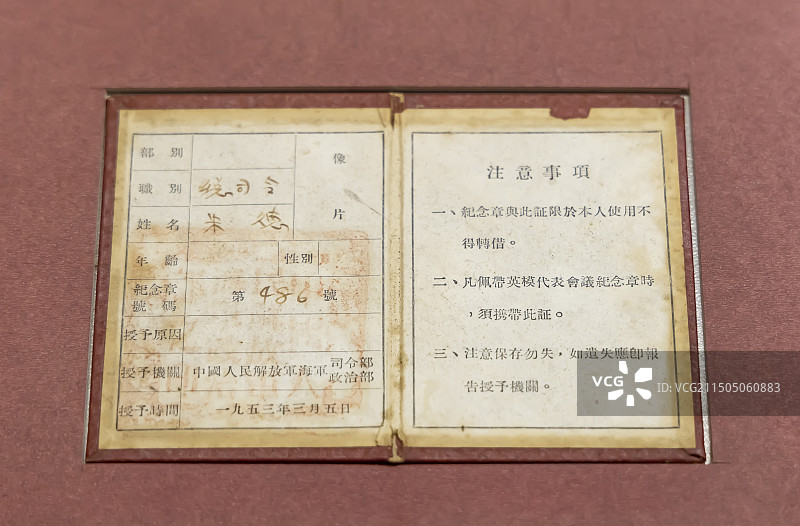 部別
像
職別 総司令
片
姓名 朱德
年齡 性別
紀念章號碼 第486號
授予原因
授予機關 中國人民解放軍海軍司令部政治部
授予時間 一九五三年三月五日
注意事項
一、紀念章與此証限於本人使用不
得轉借。
二、凡佩帶英模代表會議紀念章時
，須携帶此証。
三、注意保存勿失，如遺失應卽報
告授予機關。
VCG
视觉中国
ID:VCG211505060883